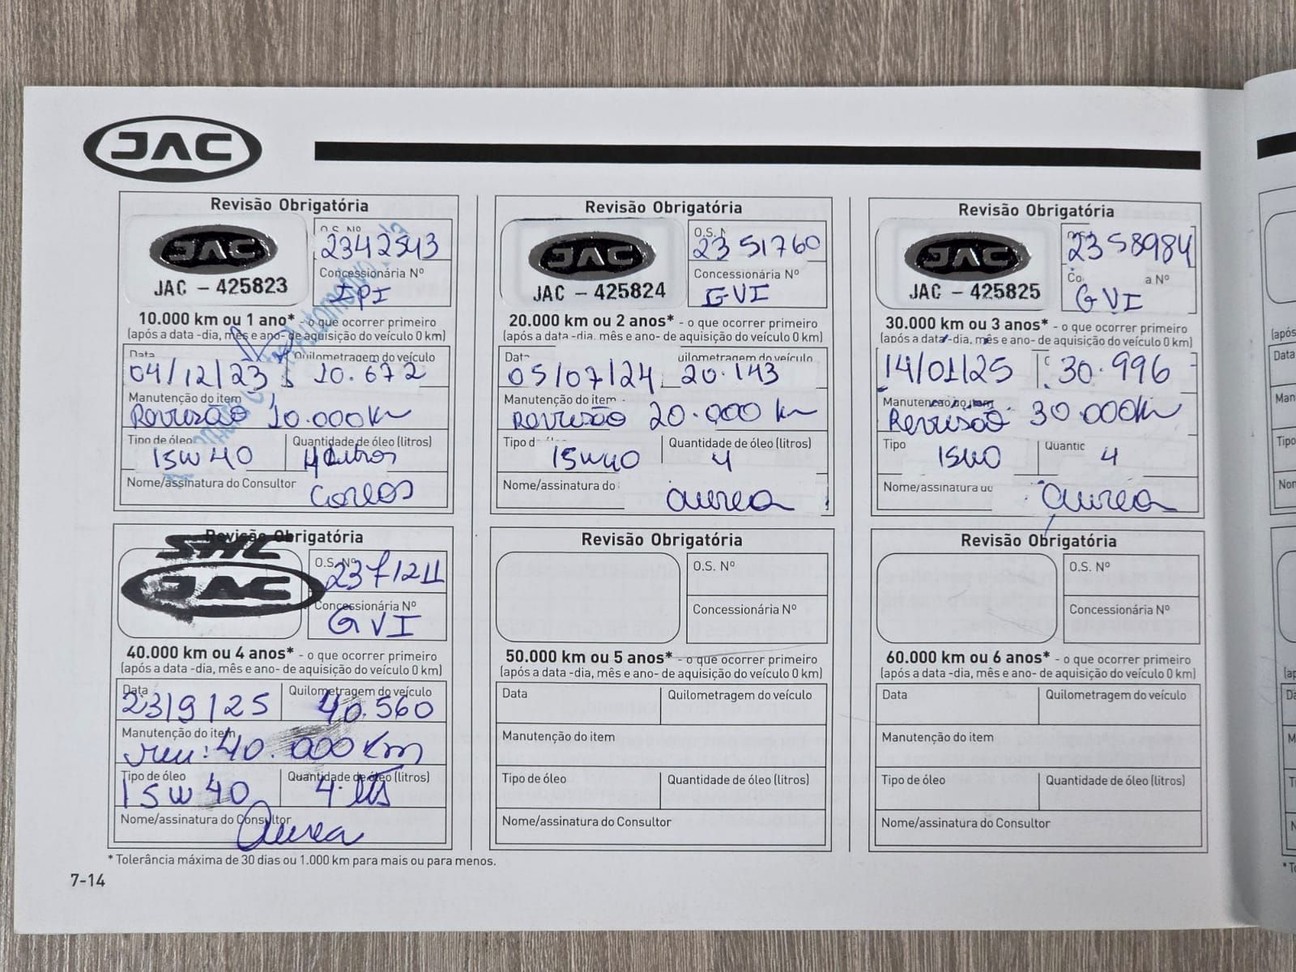 JAC
Revisão Obrigatória
JAC
JAC - 425823
O.S. Nº
2342543
Concessionária Nº
IPI
10.000 km ou 1 ano* - o que ocorrer primeiro
(após a data -dia, mês e ano- de aquisição do veículo 0 km)
Data
04/12/23
Quilometragem do veículo
10.672
Manutenção do item
Revisão 10.000km
Tipo de óleo
15W40
Quantidade de óleo (litros)
4 Litros
Nome/assinatura do Consultor
Revisão Obrigatória
JAC
JAC - 425824
O.S. N
2351760
Concessionária Nº
GVI
20.000 km ou 2 anos* - o que ocorrer primeiro
(após a data -dia, mês e ano- de aquisição do veículo 0 km)
Dat
05/07/24
uilometragem do veículo
20.143
Manutenção do item
Revisão 20.000 km
Tipo d
15W40
Quantidade de óleo (litros)
4
Nome/assinatura do
Aurea
Revisão Obrigatória
JAC
JAC - 425825
2358984
Co. a Nº
GVI
30.000 km ou 3 anos* - o que ocorrer primeiro
(após a data -dia, mês e ano- de aquisição do veículo 0 km)
14/01/25
30.996
Manutenção do item
Revisão 30.000km
Tipo
15W40
Quantic
4
Nome/assinatura do
Aurea
Revisão Obrigatória
SHC
JAC
O.S. Nº
2371211
Concessionária Nº
GVI
40.000 km ou 4 anos* - o que ocorrer primeiro
(após a data -dia, mês e ano- de aquisição do veículo 0 km)
Data
23/9/25
Quilometragem do veículo
40.560
Manutenção do item
rev: 40.000 Km
Tipo de óleo
15W40
Quantidade de óleo (litros)
4 lts
Nome/assinatura do Consultor
Aurea
Revisão Obrigatória
O.S. Nº
Concessionária Nº
50.000 km ou 5 anos* - o que ocorrer primeiro
(após a data -dia, mês e ano- de aquisição do veículo 0 km)
Data
Quilometragem do veículo
Manutenção do item
Tipo de óleo
Quantidade de óleo (litros)
Nome/assinatura do Consultor
Revisão Obrigatória
O.S. Nº
Concessionária Nº
60.000 km ou 6 anos* - o que ocorrer primeiro
(após a data -dia, mês e ano- de aquisição do veículo 0 km)
Data
Quilometragem do veículo
Manutenção do item
Tipo de óleo
Quantidade de óleo (litros)
Nome/assinatura do Consultor
* Tolerância máxima de 30 dias ou 1.000 km para mais ou para menos.
7-14